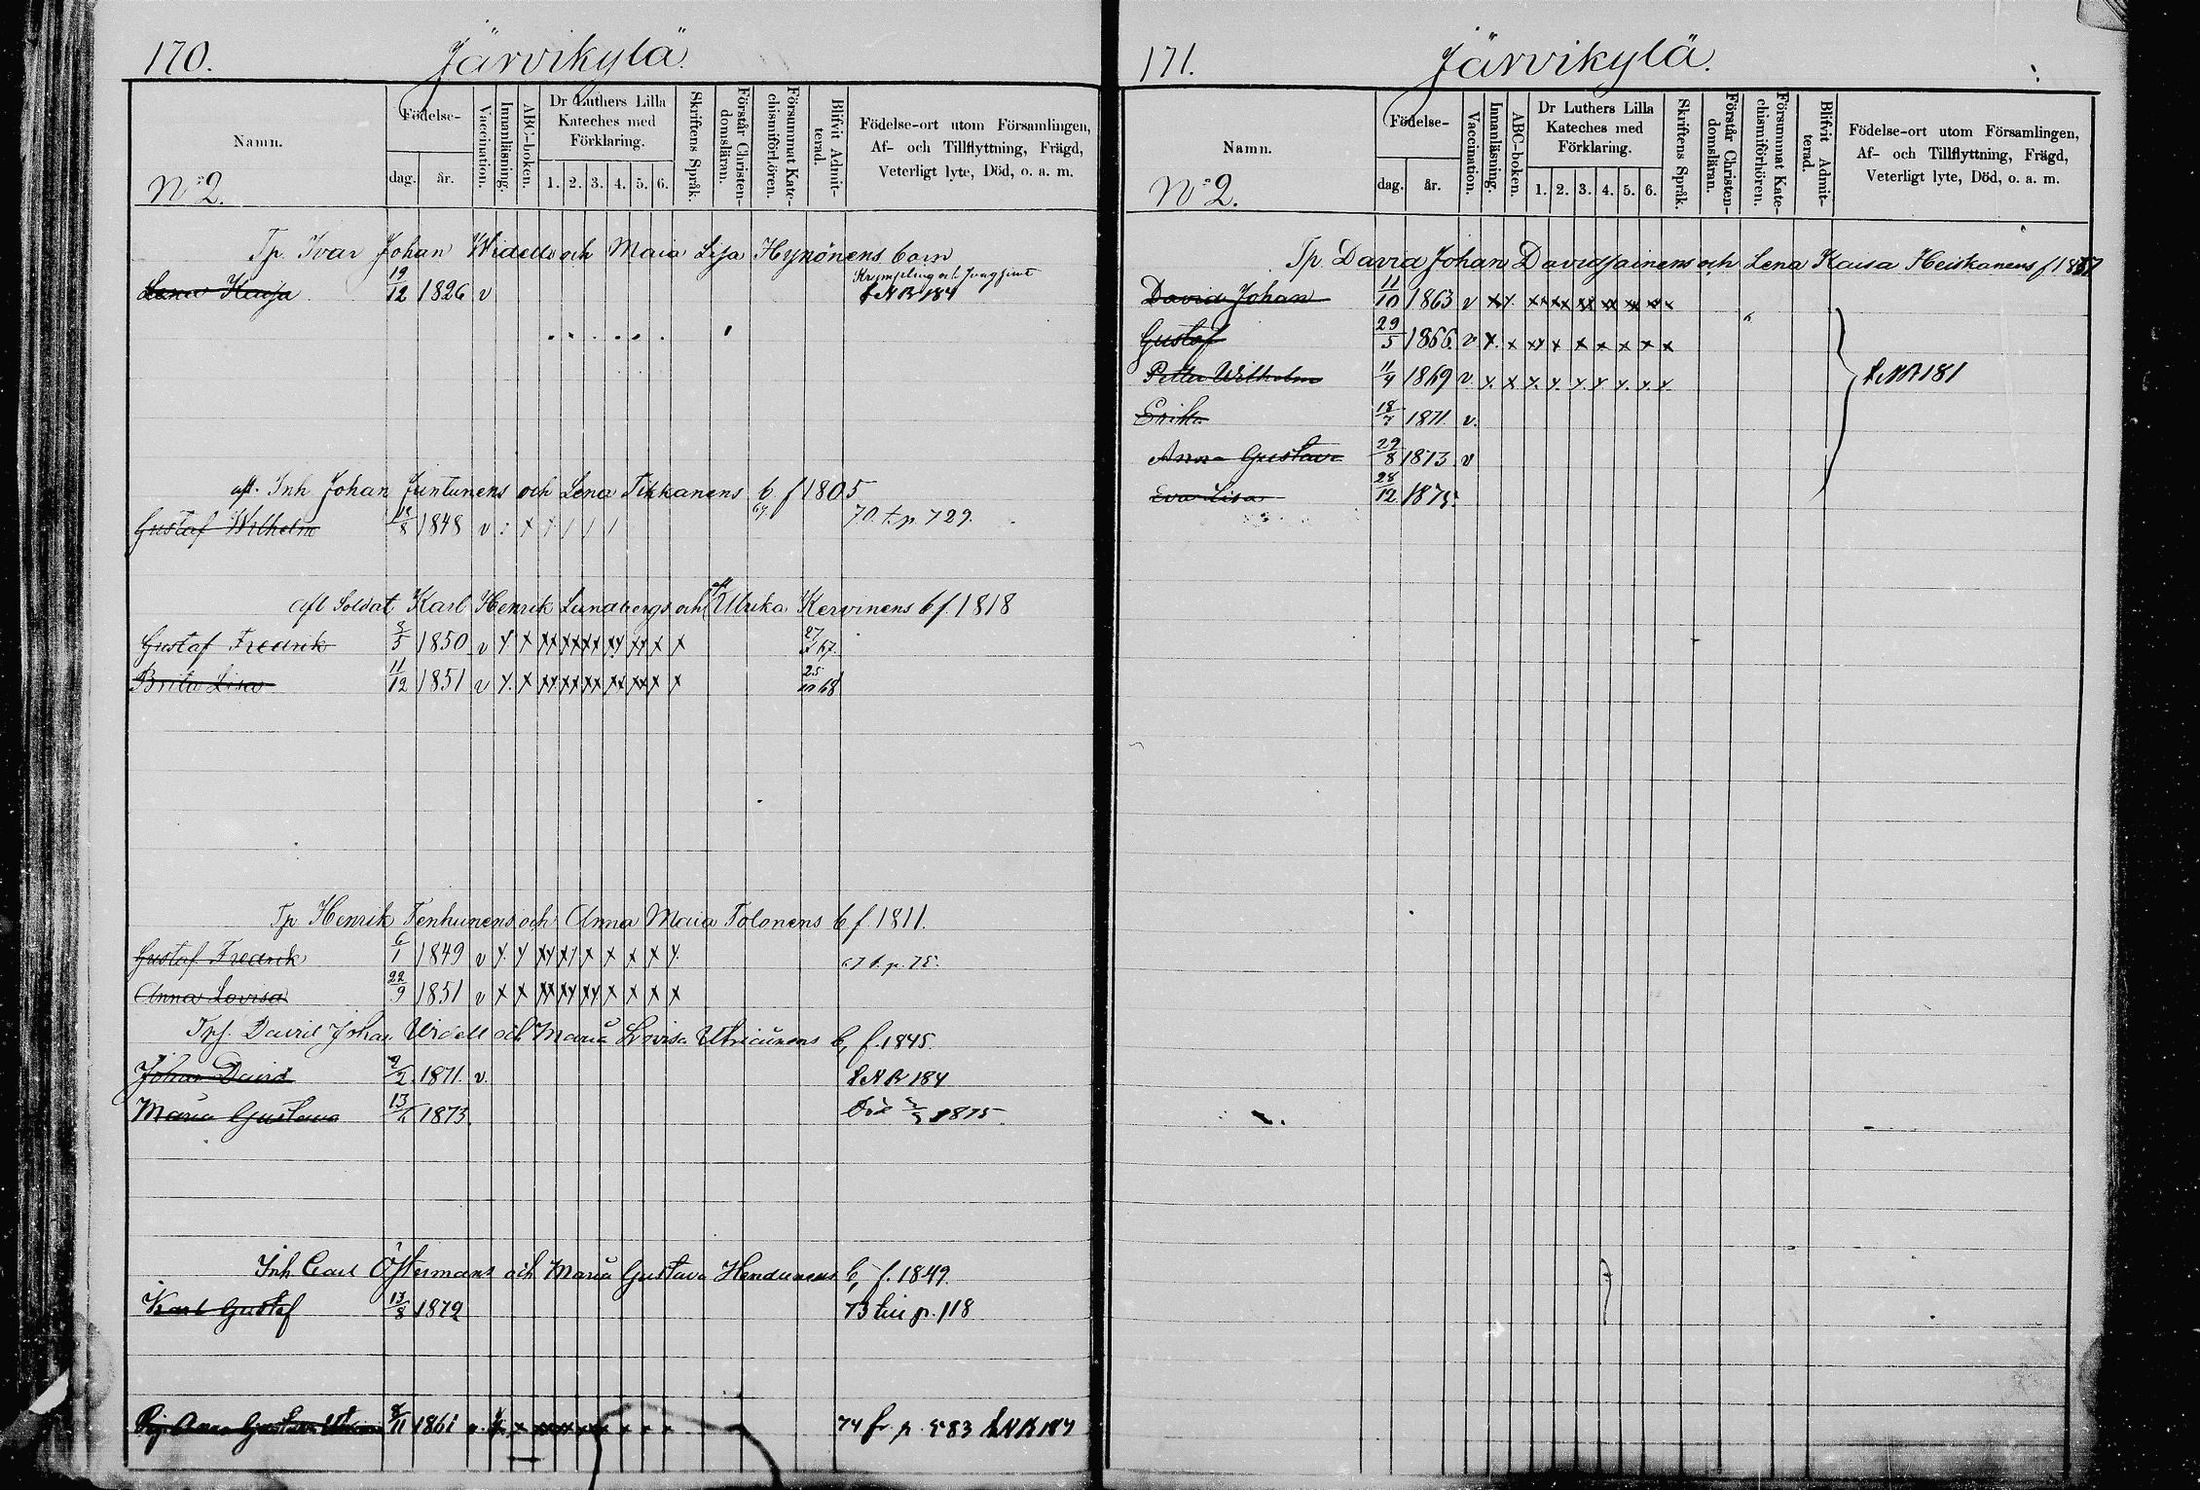 170. Järvikylä.
Namn.
No 2.
Födelse-
dag. år.
Vaccination.
Innanläsning.
ABC-boken.
Dr Luthers Lilla
Kateches med
Förklaring.
1. 2. 3. 4. 5. 6.
Skriftens Språk.
Förstår Christen-
domsläran.
Försummat Kate-
chismiförhören.
Blifvit Admit-
terad.
Födelse-ort utom Församlingen,
Af- och Tillflyttning, Frägd,
Veterligt lyte, Död, o. a. m.
Tp. Ivar Johan Widells och Maia Lisa Hynönens barn
Lena Kaisa 19/12 1826 v
f N B 184
aft. Inh Johan Juntunens och Lena Tikkanens b f 1805
Gustaf Wilhelm 18/8 1848 v 70. t. p 729.
afl Soldat Karl Henrik Lundbergs och Ulrika Kervinens b f. 1818
Gustaf Fredrik 3/5 1850 v y x xx xx xx xy xx x x 67.
Brita Lisa 11/12 1851 v y. x xx xx xx xx xx x x 25/10 68
Tp Henrik Tenhunens och Anna Maia Tolonens b f. 1811.
Gustaf Fredrik 6/1 1849 v y. y xy xy x x x x y. t. p. 75.
Anna Lovisa 22/9 1851 v x x xx xy xy x x x x
Tpf. David Johan Widell och Maria Lovisa b, f. 1845.
Johan David 2/2 1871. v. f N B 184
Maria Gustava 1873. Död 1875.
Inh Carl Östermans och Maria Gustava b, f. 1849.
Karl Gustaf 13/8 1872 73 till p. 118
Pig. Anna Gustava 8/11 1861 v. 74 fr. p. 583 f N B 184
171. Järvikylä.
Namn.
No 2.
Födelse-
dag. år.
Vaccination.
Innanläsning.
ABC-boken.
Dr Luthers Lilla
Kateches med
Förklaring.
1. 2. 3. 4. 5. 6.
Skriftens Språk.
Förstår Christen-
domsläran.
Försummat Kate-
chismiförhören.
Blifvit Admit-
terad.
Födelse-ort utom Församlingen,
Af- och Tillflyttning, Frägd,
Veterligt lyte, Död, o. a. m.
Tp. David Johan Davidsainens och Lena Kaisa Heiskanens f
David Johan 11/10 1863 v xx y. xx xx xx xx xx xx x
Gustaf 29/5 1866. v y. x xy x x x x x x
Petter Wilhelm 11/4 1869 v y. x y. y. y. y y. y. y
f N B 181
Erika 18/7 1871. v.
Anna Gustava 29/8 1873 v
Eva Lisa 28/12 1875.